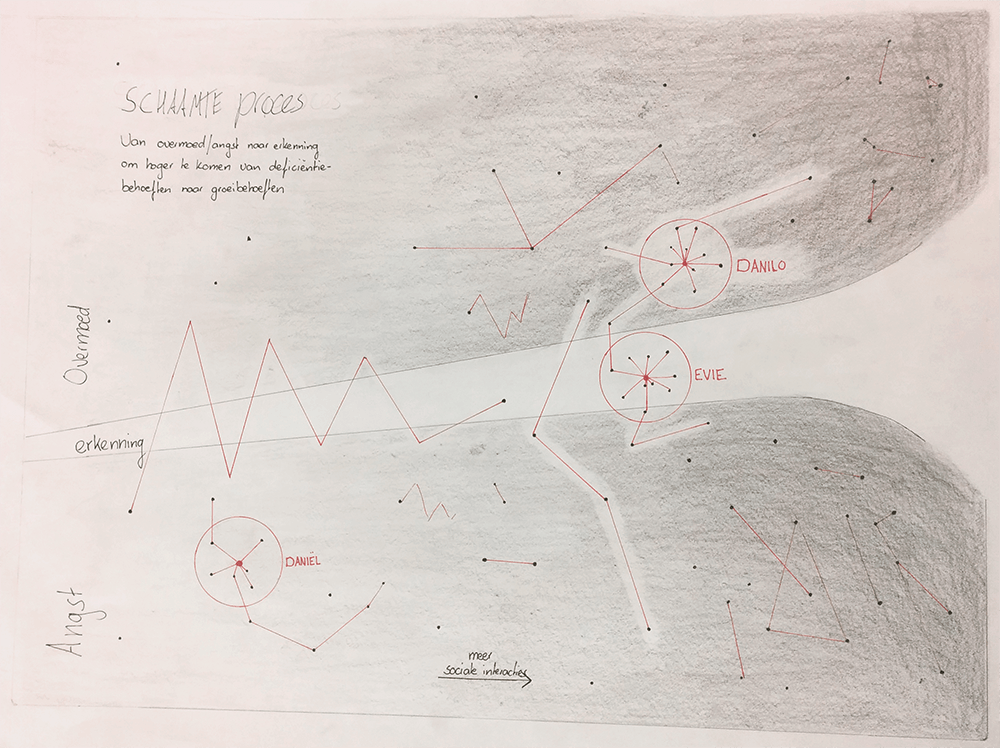 SCHAAMTE proces
Van overmoed/angst naar erkenning
om hoger te komen van deficiëntie-
behoeften naar groeibehoeften
DANILO
Overmoed
EVIE
erkenning
DANIËL
Angst
meer
sociale interacties